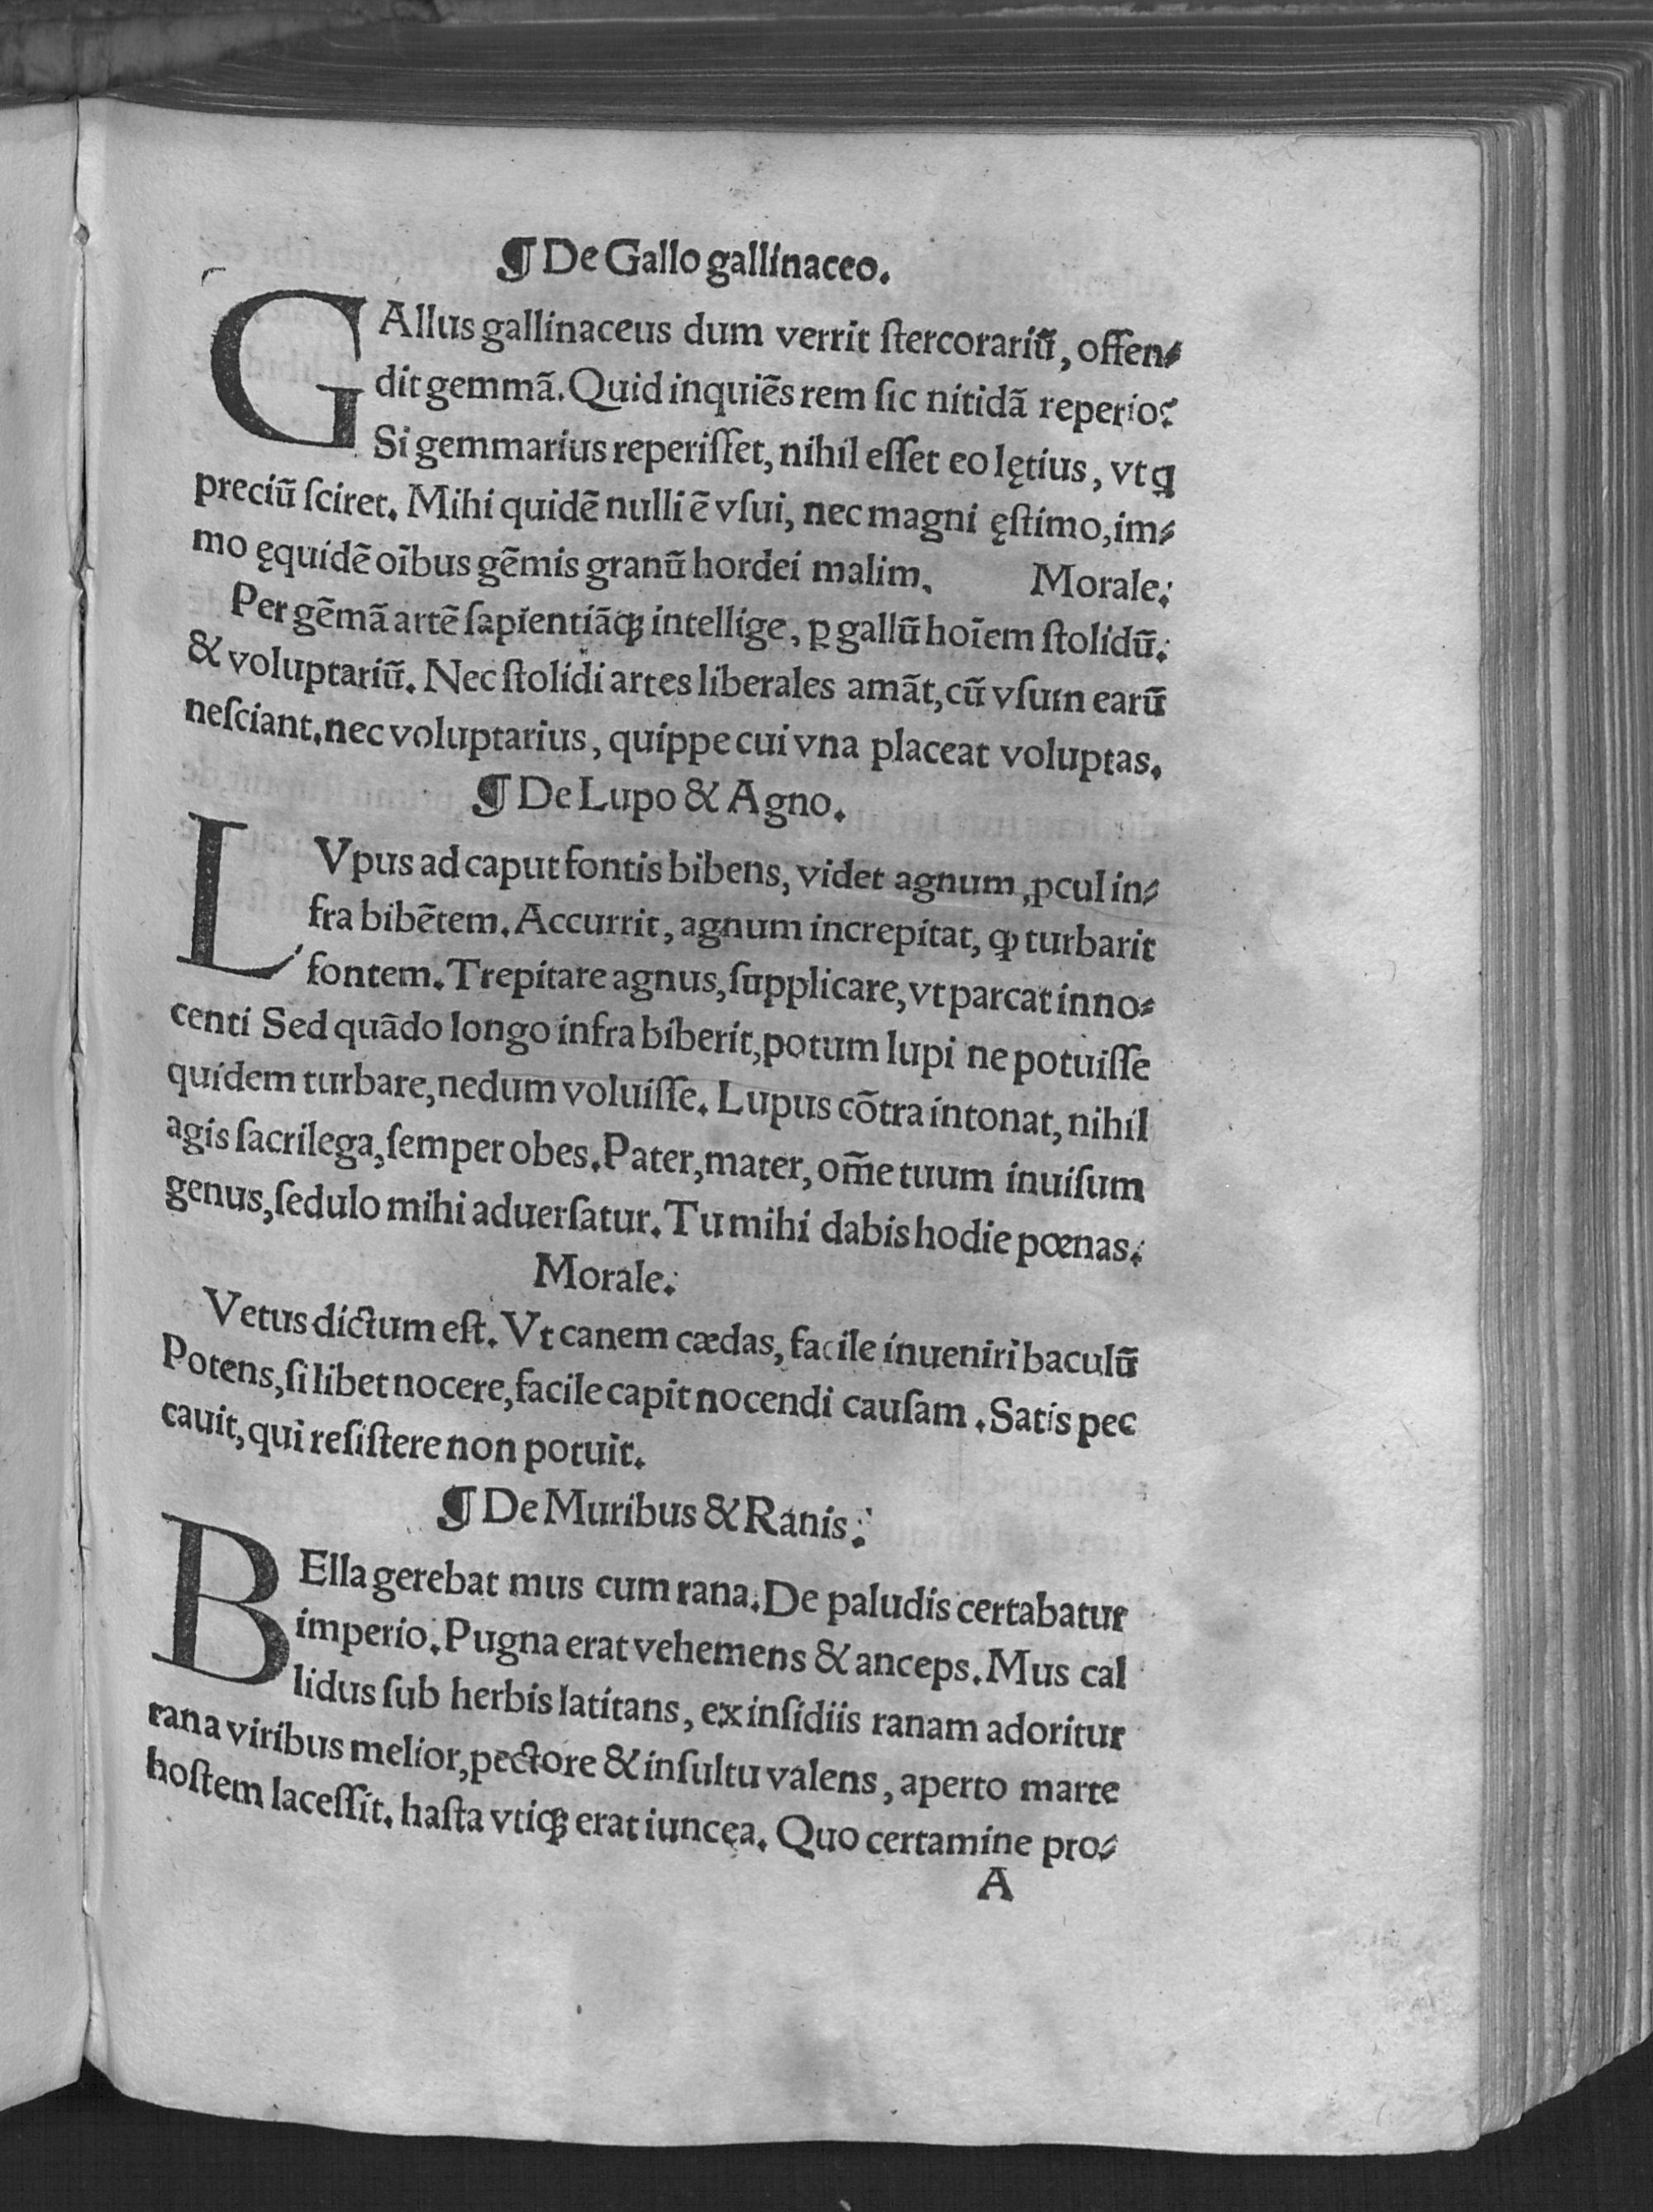 ¶ De Gallo gallinaceo.
GAllus gallinaceus dum verrit ſtercorariũ, offen⸗
dit gemmã. Quid inquiẽs rem ſic nitidã reperio?
Si gemmarius reperiſſet, nihil eſſet eo lętius, vt q
preciũ ſciret. Mihi quidẽ nulli ẽ vſui, nec magni ęſtimo, im⸗
mo ęquidẽ oĩbus gẽmis granũ hordei malim. Morale:
Per gẽmã artẽ ſapientiãꝗꝫ intellige, ꝑ gallũ hoĩem ſtolidũ:
& voluptariũ. Nec ſtolidi artes liberales amãt, cũ vſum earũ
neſciant. nec voluptarius, quippe cui vna placeat voluptas.
¶ De Lupo & Agno.
LVpus ad caput fontis bibens, videt agnum ꝓcul in⸗
fra bibẽtem. Accurrit, agnum increpitat, ꝙ turbarit
fontem. Trepitare agnus, ſupplicare, vt parcat inno⸗
centi Sed quãdo longo infra biberit, potum lupi ne potuiſſe
quidem turbare, nedum voluiſſe. Lupus cõtra intonat, nihil
agis ſacrilega, ſemper obes. Pater, mater, om̃e tuum inuiſum
genus, ſedulo mihi aduerſatur. Tu mihi dabis hodie pœnas:
Morale:
Vetus dictum eſt. Vt canem cædas, facile inueniri baculũ
Potens, ſi libet nocere, facile capit nocendi cauſam. Satis pec
cauit, qui reſiſtere non potuit.
¶ De Muribus & Ranis:
BElla gerebat mus cum rana. De paludis certabatur
imperio. Pugna erat vehemens & anceps. Mus cal
lidus ſub herbis latitans, ex inſidiis ranam adoritur
rana viribus melior, pectore & inſultu valens, aperto marte
hoſtem laceſſit. haſta vtiꝗꝫ erat iuncęa. Quo certamine pro⸗
A